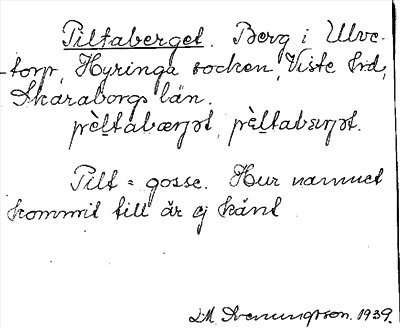 Piltaberget. Berg i Ulve-
torp, Hyringa socken, Viste hrd,
Skaraborgs län.
pèltabærjət, pèltabærjət.
Pilt = gosse. Hur namnet
kommit till är ej känt
LM. Svenungsson. 1939.